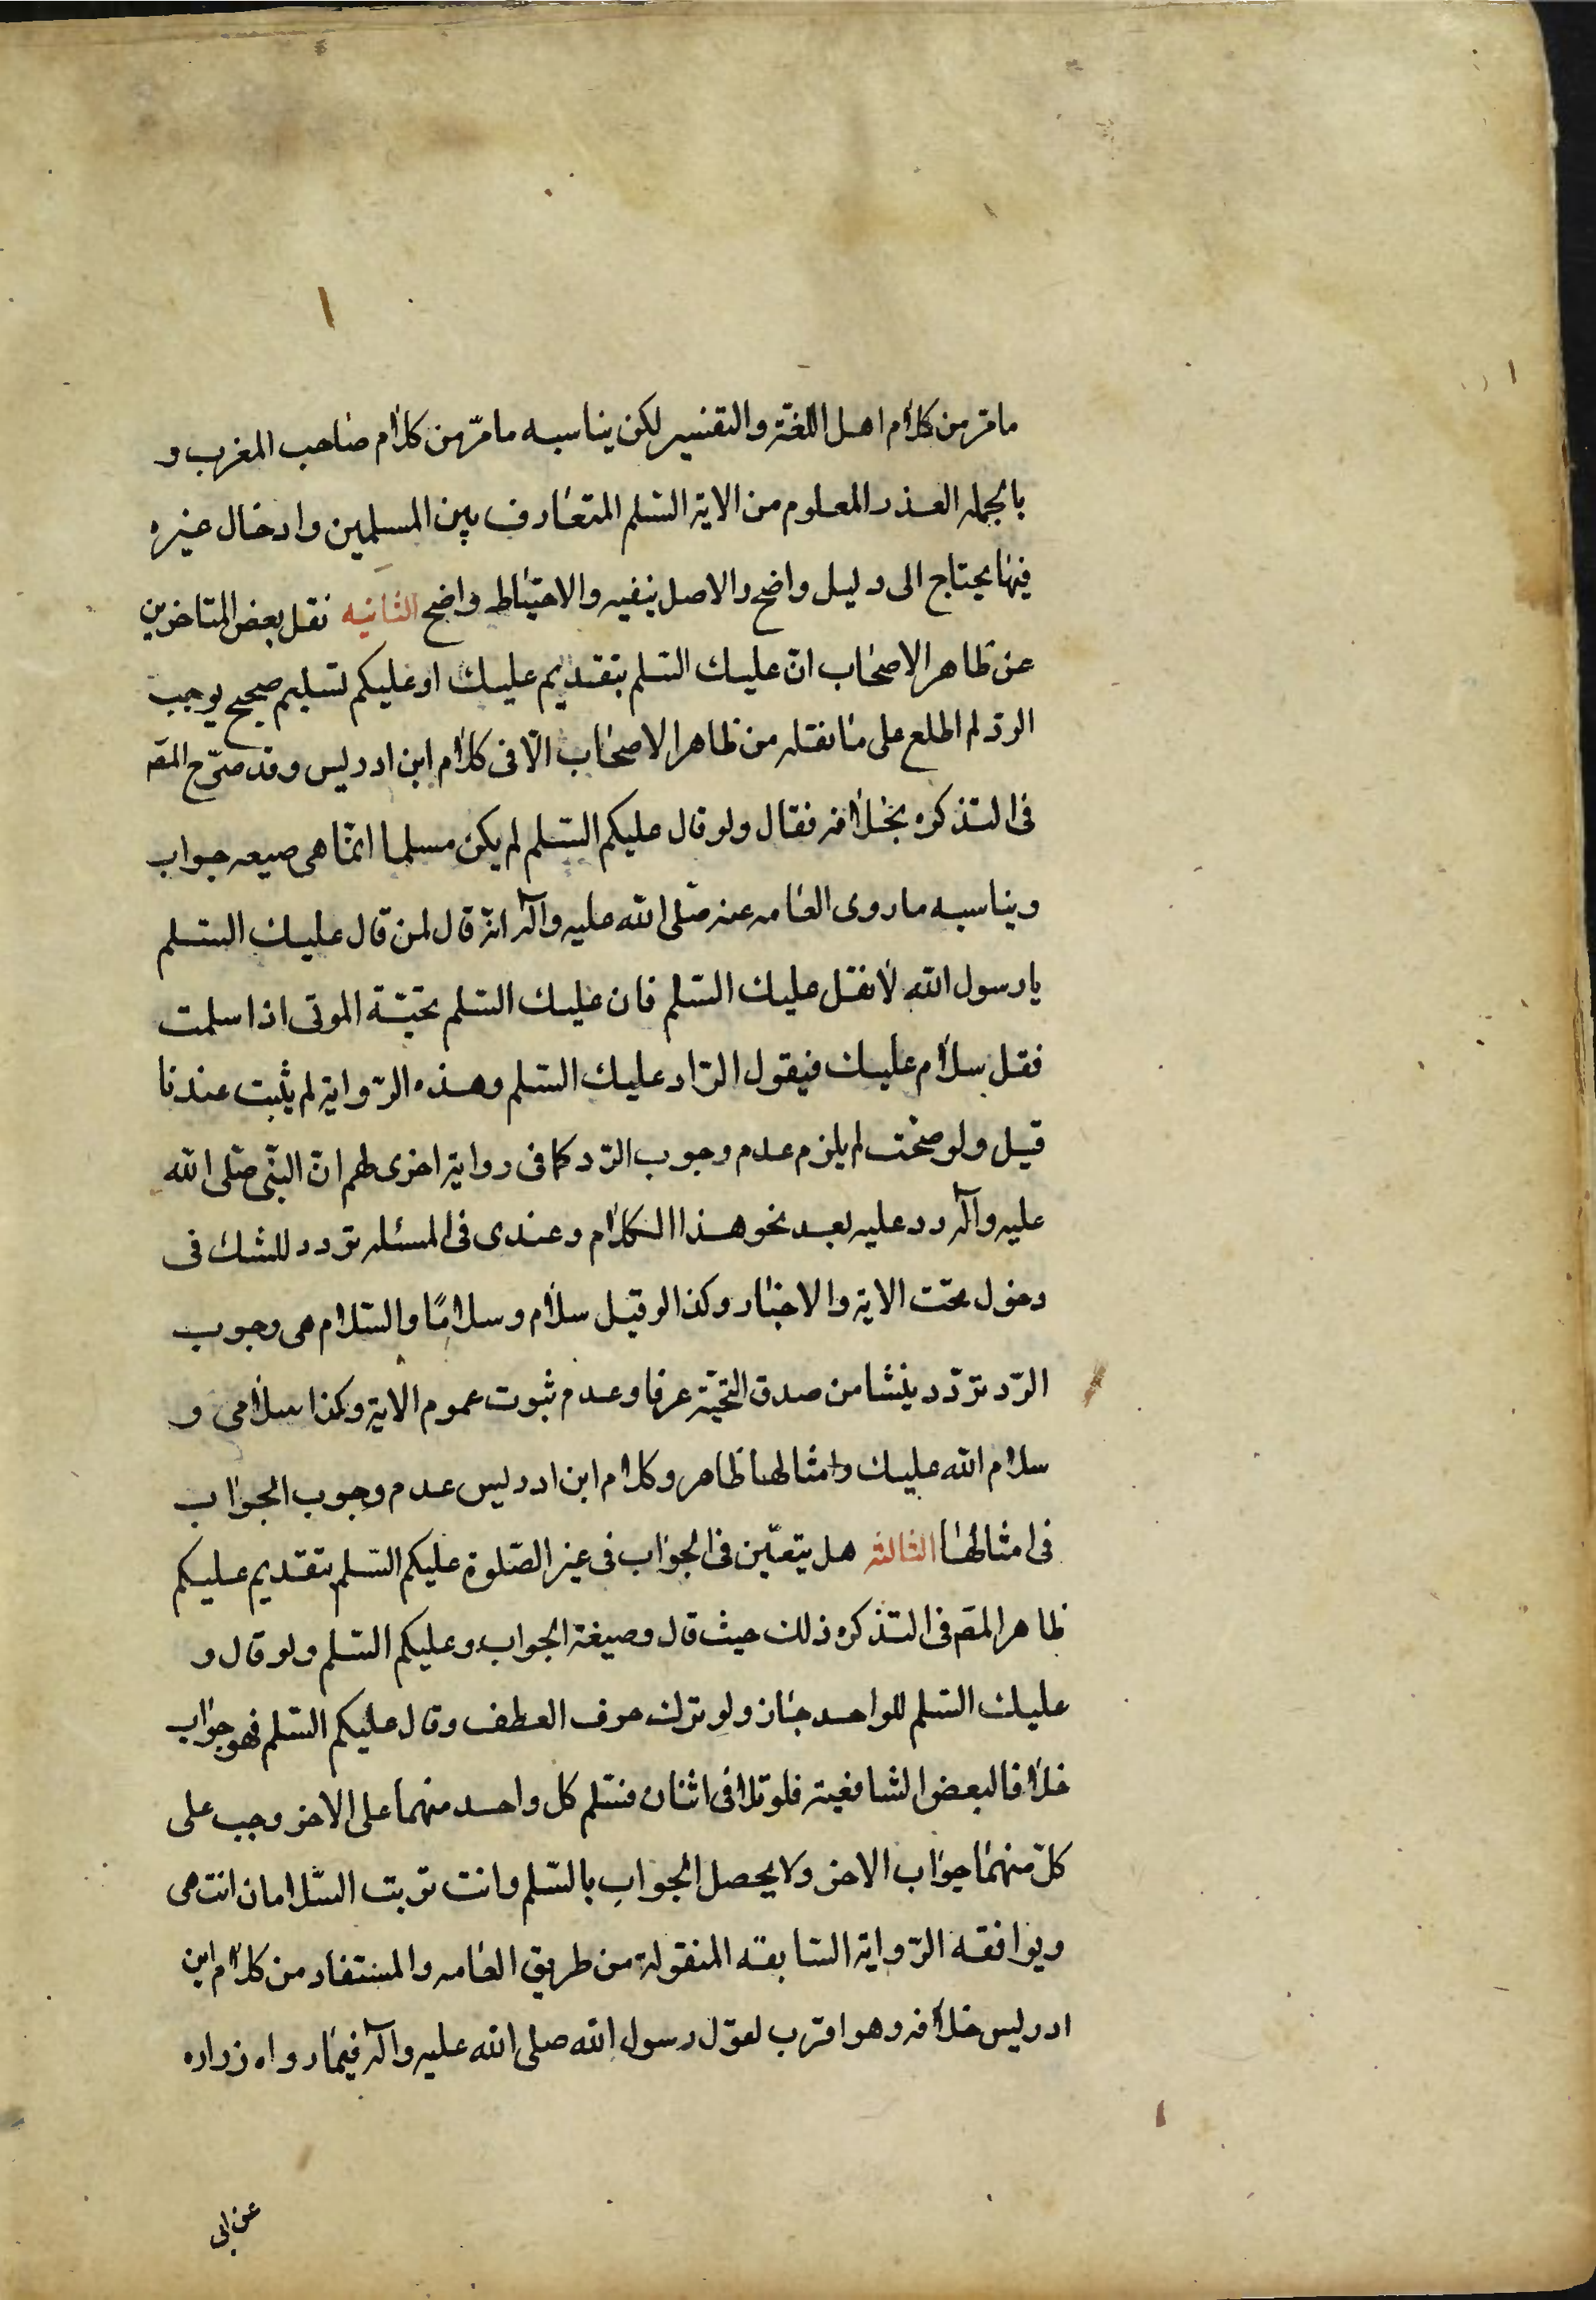 مامّر من كلام اهل اللغة والتفسير لكن يناسبه مامّر من كلام صاحب المغرب و
بالجمله العذر المعلوم من الاية السّلم المتعارف بين المسلمين وادخال غيره
فيها يحتاج الى دليل واضح والاصل ينفيه والاحتياط واضح الثانيه نقل بعض المتاخرين
عن ظاهر الاصحاب انّ عليك السّلم بتقديم عليك او عليكم تسليم صحيح يوجب
الردّ لم اطلع على ما نقله من ظاهر الاصحاب الّا فى كلام ابن ادريس وقد صرّح المصّ
فى التذكره بخلافه فقال ولو قال عليكم السّلم لم يكن مسلما انّما هى صيعه جواب
ويناسبه ما روى العامه عنه صلى الله عليه وآله انّه قال لمن قال عليك السّلم
يا رسول الله لا تقل عليك السّلم فان عليك السّلم تحيّة الموتى اذا سلمت
فقل سلام عليك فيقول الرّاد عليك السّلم وهذه الرّواية لم يثبت عندنا
قيل ولو صحّت لم يلزم عدم وجوب الرّد كما فى رواية اخرى لهم انّ النّبى صلّى الله
عليه وآله ردد عليه بعد نحو هذا الكلام وعندى فى المسئله تردد للشك فى
دخول تحت الاية والاخبار وكذا لو قيل سلام وسلامًا والسّلام هى وجوب
الرّد تردّد ينشا من صدق التحيّة عرفا وعدم ثبوت عموم الاية وكذا سلامى و
سلام الله عليك وامثالها ظاهر وكلام ابن ادريس عدم وجوب الجواب
فى امثالها الثالثه هل يتعيّن فى الجواب فى غير الصّلوة عليكم السّلم بتقديم عليكم
ظاهر المصّ فى التذكره ذلك حيث قال وصيغة الجواب وعليكم السّلم ولو قال و
عليك السّلم للواحد جاز ولو ترك حرف العطف وقال عليكم السّلم فهو جواب
خلافا لبعض الشافعية فلو تلاقى اثنان فسّلم كل واحد منهما على الاخر وجب على
كلّ منهما جواب الاخر ولا يحصل الجواب بالسّلم وانت تربت السّلامان انتهى
ويوافقه الرّواية السّابقه المنقولة من طريق العامه والمستفاد من كلام ابن
ادريس خلافه وهو اقرب لقول رسول الله صلى الله عليه وآله فيما رواه زراره
عن ابى